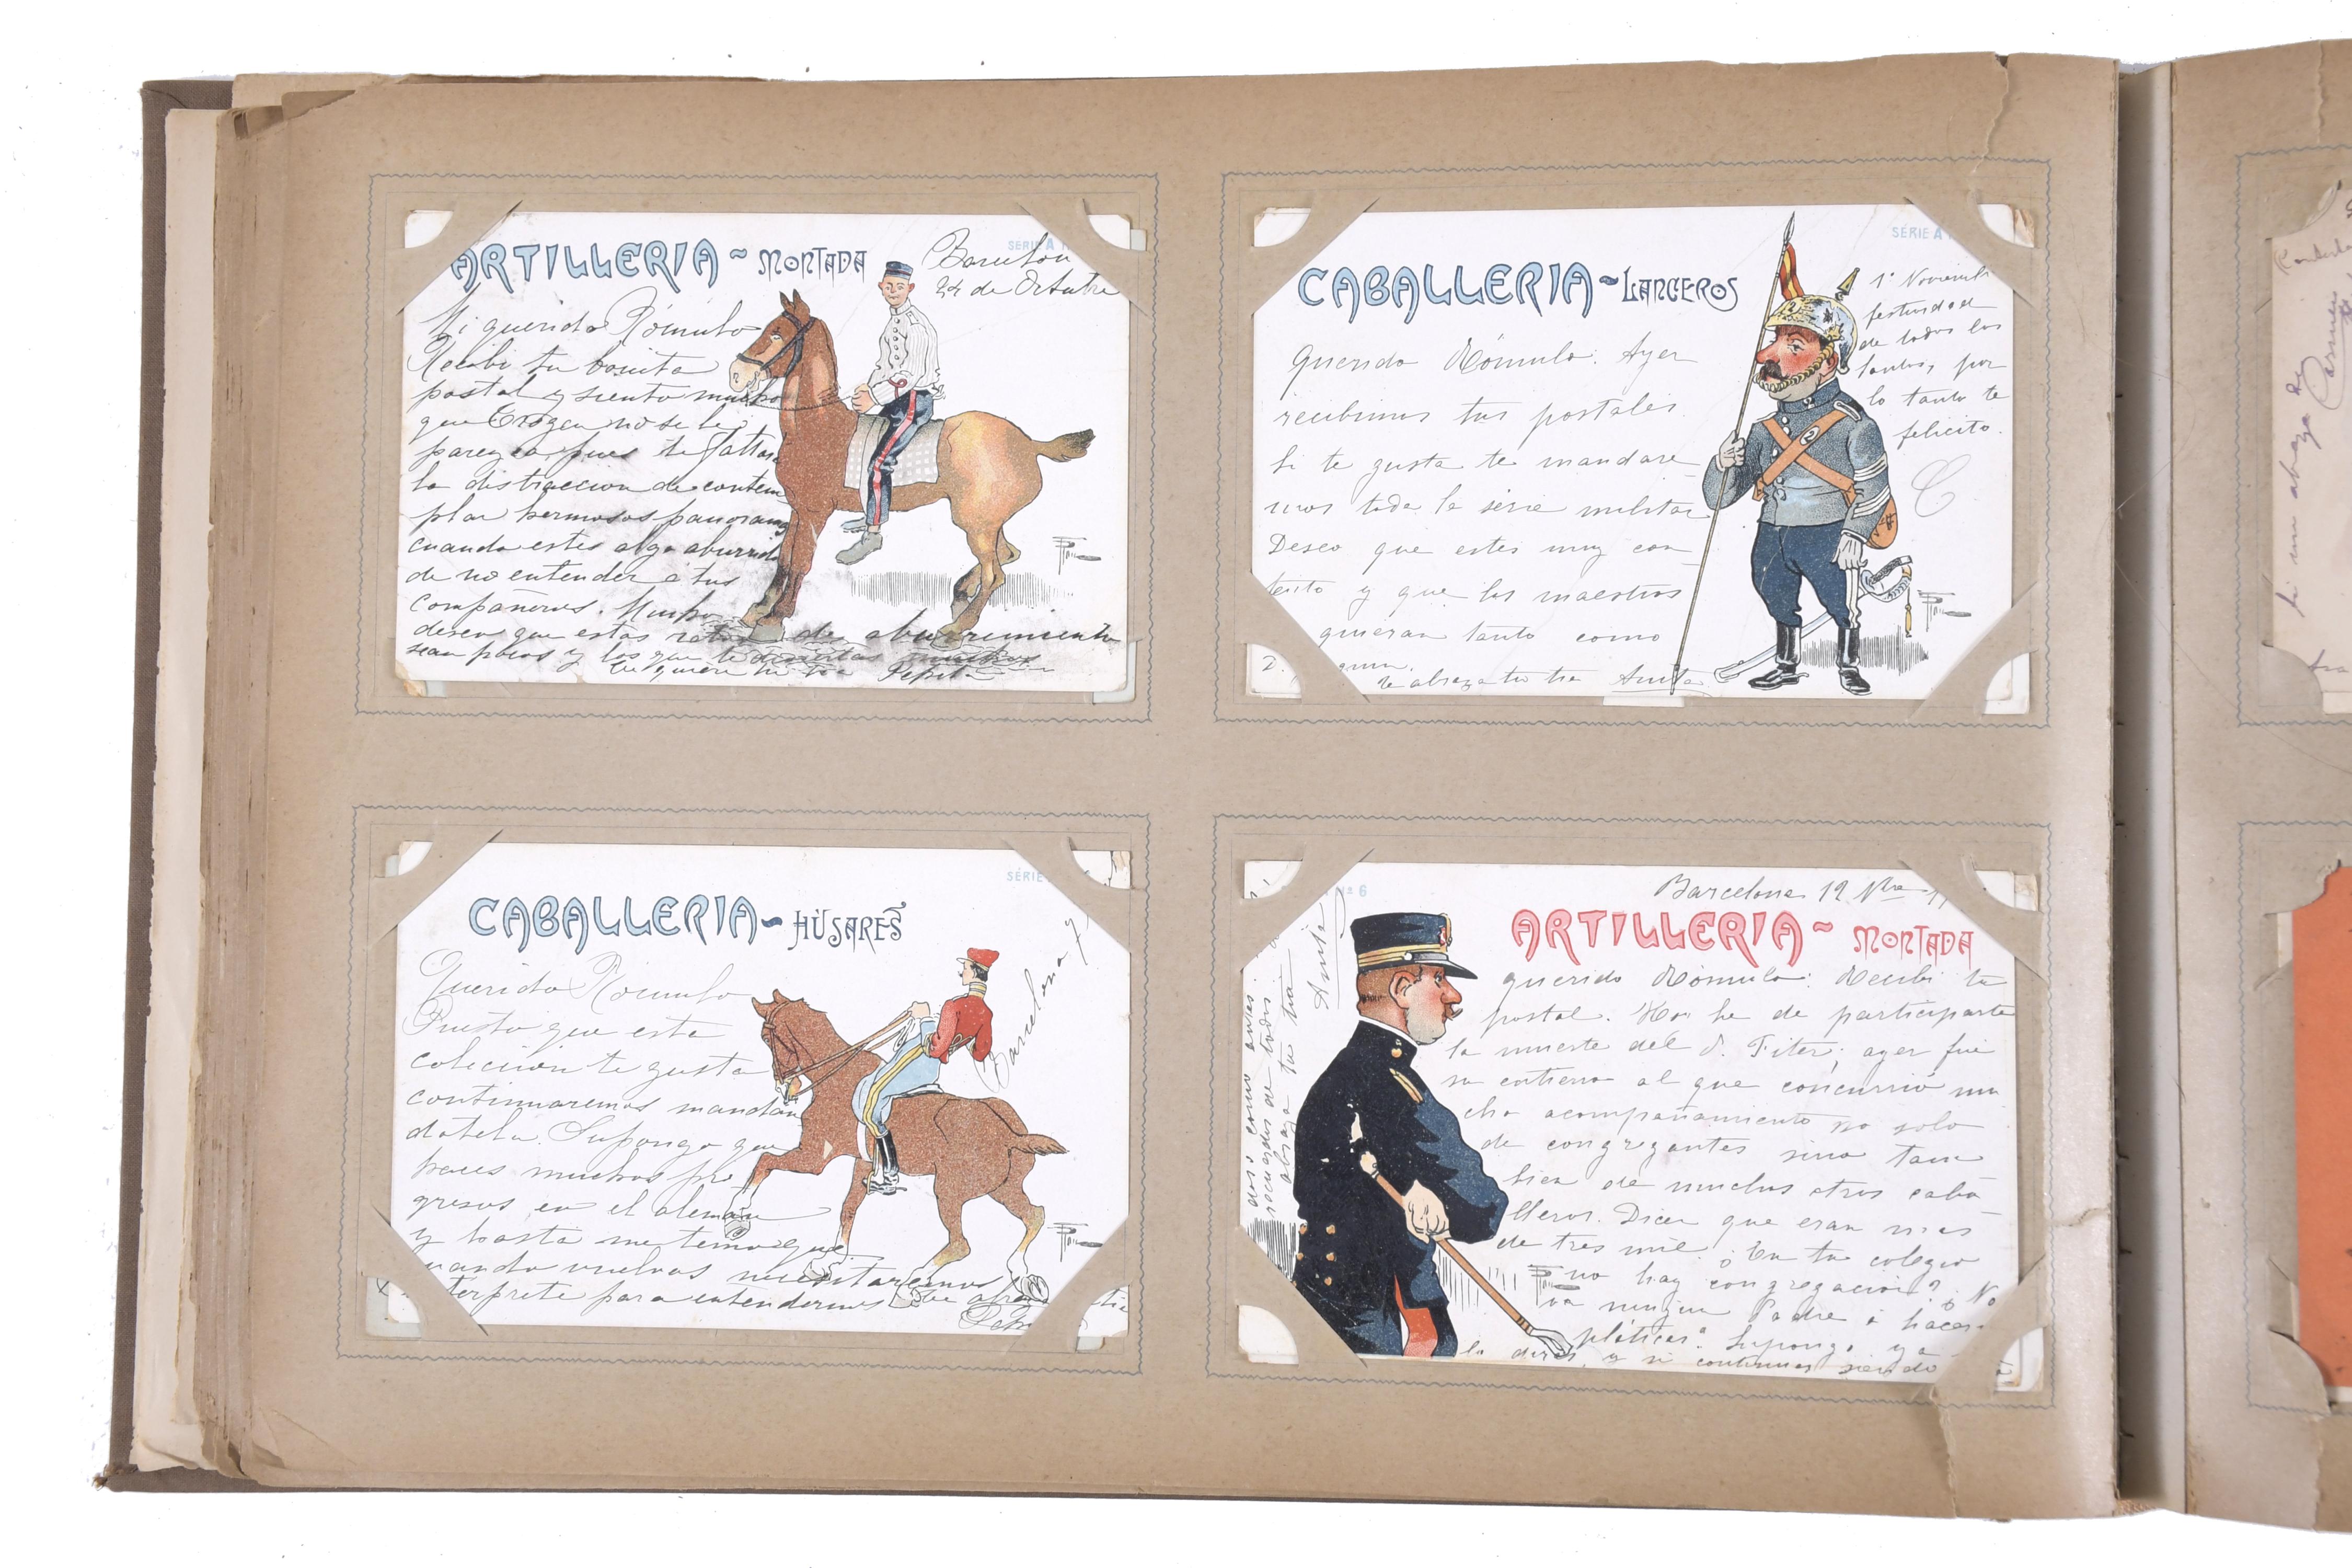 SÉRIE A
ARTILLERIA ~ MONTADA
24 de Octubre
Mi querido Rómulo
Recibi tu bonita
postal y siento mucho
que no se le
parezca pues te faltara
la distraccion de contem
plar hermosos panoramas
cuando estes algo aburrido
de no entender á tus
compañeros. Mucho
deseo que estos ratos de aburrimiento
sean pocos y los que te diviertas muchos
te quiere tu tia Pepita
SÉRIE A
CABALLERIA ~ LANCEROS
1º Noviembre
festividad
de todos los
santos, por
lo tanto te
felicito.
Querido Rómulo: Ayer
recibimos tus postales.
Si te gusta te mandare
mos toda la série militar
Deseo que estes muy con
tento y que los maestros
te quieran tanto como
te abraza tu tia Anita
SÉRIE
CABALLERIA ~ HÚSARES
Barcelona 7
Querido Rómulo
Puesto que esta
coleccion te gusta
continuaremos mandan
dotela. Supongo que
haces muchos pro
gresos en el aleman
y hasta me temo que
cuando vuelvas necesitaremos
interprete para entendernos
Nº 6
Barcelona 12 Nbre
ARTILLERIA ~ MONTADA
querido Rómulo: Recibi tu
postal. Hoy he de participarte
la muerte del S. Fiter; ayer fué
su entierro al que concurrió mu
cho acompañamiento no solo
de congregantes sino tam
bien de muchos otros caba
lleros. Dicen que eran mas
de tres mil ¿En tu colegio
no hay congregacion? ¿No
va ningun Padre á hacer
pláticas? Supongo ya
lo dirás, y si continuas siendo
abraza tu tia
Anita